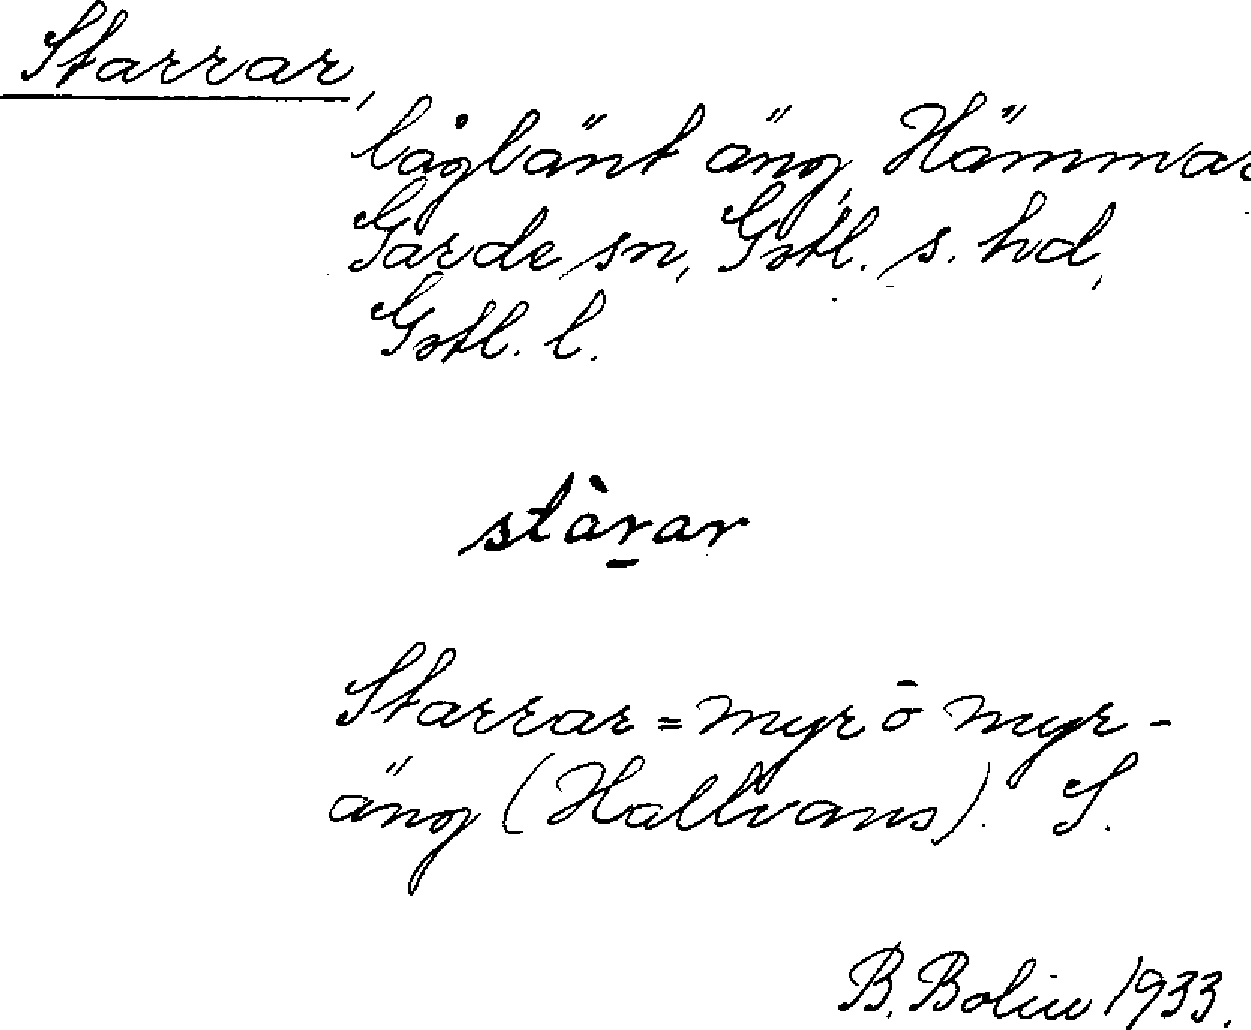 Starrar,
låglänt äng, Hämmar
Garde sn, Gotl. s. hd,
Gotl. l.
stàrar
Starrar = myr ō myr-
äng (Hallvans). S.
B. Bolin 1933.